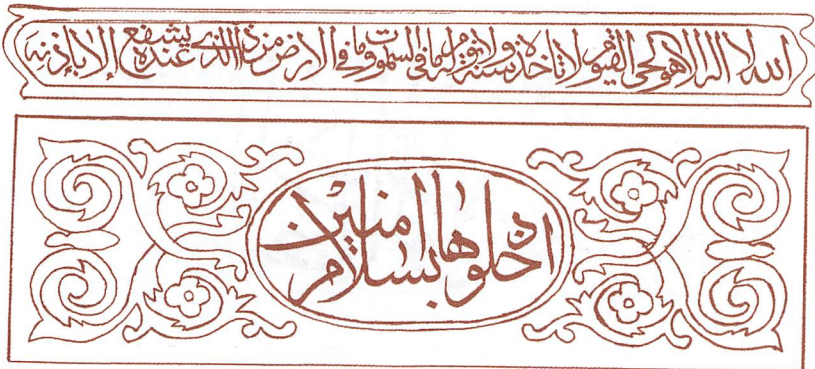 الله لا اله الا هو الحي القيوم لا تاخذه سنة ولا نوم له ما في السموات وما في الارض من ذا الذي عنده يشفع الا باذنه
ادخلوها بسلام امنين